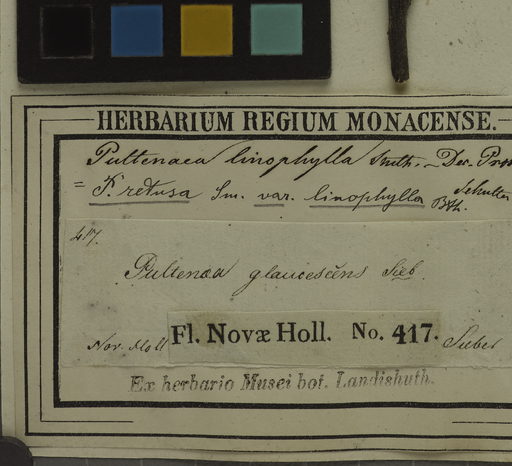 HERBARIUM REGIUM MONACENSE.
Pultenaea linophylla Smith. Dec. Prod
= P. retusa Sm. var. linophylla Bth.
417.
Pultenæa glaucescens Sieb.
Nov. Holl Fl. Novæ Holl. No. 417. Sieber
Ex herbario Musei bot. Landishuth.